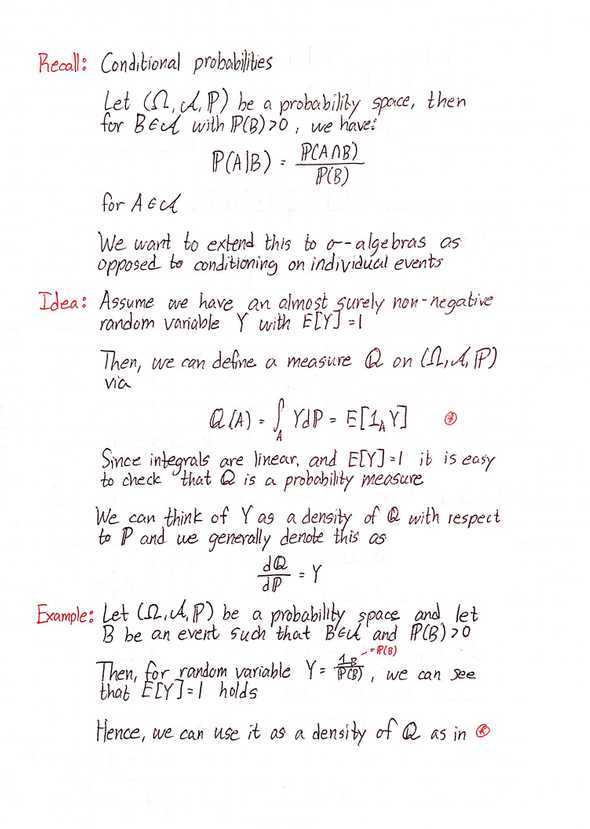 Recall: Conditional probabilities
Let (Ω, 𝒜, ℙ) be a probability space, then
for B∈𝒜 with ℙ(B)>0, we have:
ℙ(A|B) = ℙ(A∩B) / ℙ(B)
for A∈𝒜
We want to extend this to σ-algebras as
opposed to conditioning on individual events
Idea: Assume we have an almost surely non-negative
random variable Y with E[Y]=1
Then, we can define a measure ℚ on (Ω, 𝒜, ℙ)
via
ℚ(A) = ∫_A Y dℙ = E[1_A Y] ⊛
Since integrals are linear, and E[Y]=1 it is easy
to check that ℚ is a probability measure
We can think of Y as a density of ℚ with respect
to ℙ and we generally denote this as
dℚ/dℙ = Y
Example: Let (Ω, 𝒜, ℙ) be a probability space and let
B be an event such that B∈𝒜 and ℙ(B)>0
Then, for random variable Y = 1_B / ℙ(B), we can see
that E[Y]=1 holds
Hence, we can use it as a density of ℚ as in ⊛